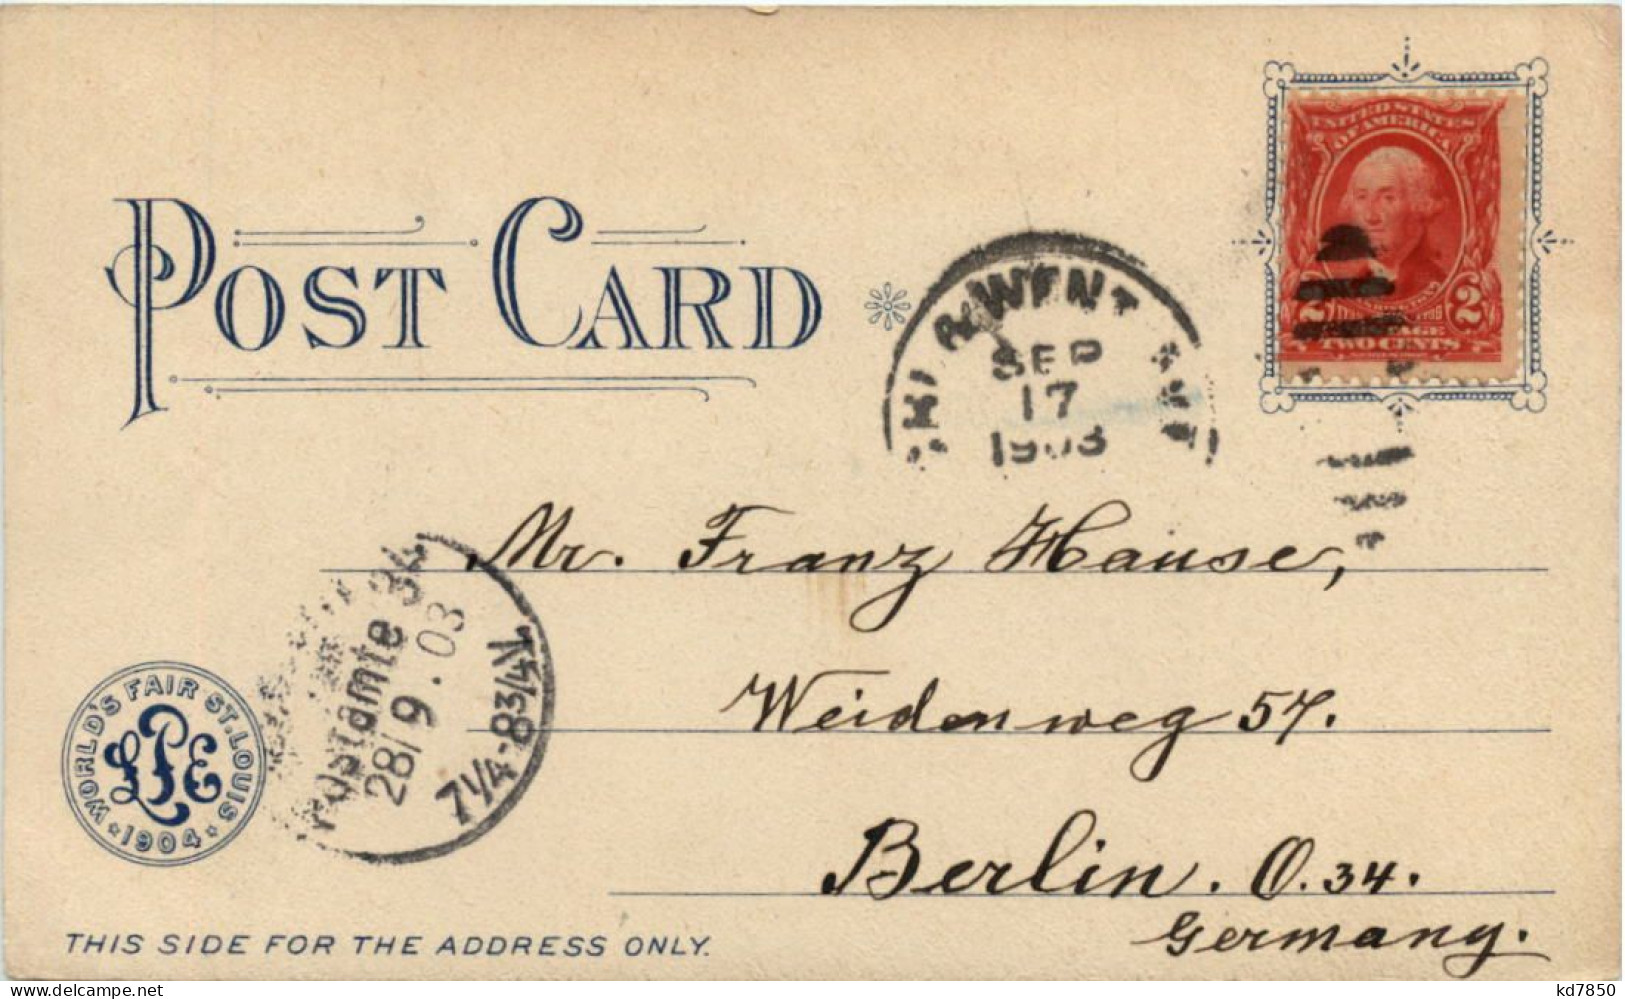 POST CARD
UNITED STATES
OF AMERICA
2 2
TWO CENTS
SEP
17
1903
Mr. Franz Hause,
Weidenweg 57.
Berlin. O. 34.
Germany.
34
Postamte
28/9.03
7 1/4-8 3/4 V.
WORLD'S FAIR ST. LOUIS
LPE
1904
THIS SIDE FOR THE ADDRESS ONLY.
kd7850